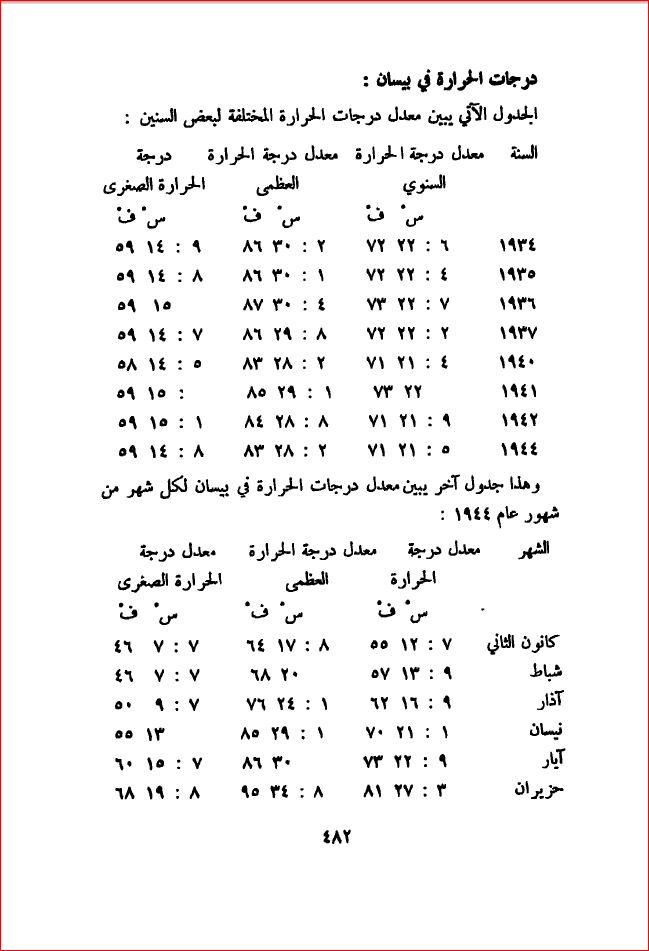 درجات الحرارة في بيسان :
الجدول الآتي يبين معدل درجات الحرارة المختلفة لبعض السنين :
السنة معدل درجة الحرارة معدل درجة الحرارة درجة
السنوي العظمى الحرارة الصغرى
سْ فْ سْ فْ سْ فْ
١٩٣٤ ٦ : ٢٢ ٧٢ ٢ : ٣٠ ٨٦ ٩ : ١٤ ٥٩
١٩٣٥ ٤ : ٢٢ ٧٢ ١ : ٣٠ ٨٦ ٨ : ١٤ ٥٩
١٩٣٦ ٧ : ٢٢ ٧٣ ٤ : ٣٠ ٨٧ ١٥ ٥٩
١٩٣٧ ٢ : ٢٢ ٧٢ ٨ : ٢٩ ٨٦ ٧ : ١٤ ٥٩
١٩٤٠ ٤ : ٢١ ٧١ ٢ : ٢٨ ٨٣ ٥ : ١٤ ٥٨
١٩٤١ ٢٢ ٧٣ ١ : ٢٩ ٨٥ : ١٥ ٥٩
١٩٤٢ ٩ : ٢١ ٧١ ٨ : ٢٨ ٨٤ ١ : ١٥ ٥٩
١٩٤٤ ٥ : ٢١ ٧١ ٢ : ٢٨ ٨٣ ٨ : ١٤ ٥٩
وهذا جدول آخر يبين معدل درجات الحرارة في بيسان لكل شهر من
شهور عام ١٩٤٤ :
الشهر معدل درجة معدل درجة الحرارة معدل درجة
الحرارة العظمى الحرارة الصغرى
سْ فْ سْ فْ سْ فْ
كانون الثاني ٧ : ١٢ ٥٥ ٨ : ١٧ ٦٤ ٧ : ٧ ٤٦
شباط ٩ : ١٣ ٥٧ ٢٠ ٦٨ ٧ : ٧ ٤٦
آذار ٩ : ١٦ ٦٢ ١ : ٢٤ ٧٦ ٧ : ٩ ٥٠
نيسان ١ : ٢١ ٧٠ ١ : ٢٩ ٨٥ ١٣ ٥٥
آيار ٩ : ٢٢ ٧٣ ٣٠ ٨٦ ٧ : ١٥ ٦٠
حزيران ٣ : ٢٧ ٨١ ٨ : ٣٤ ٩٥ ٨ : ١٩ ٦٨
٤٨٢